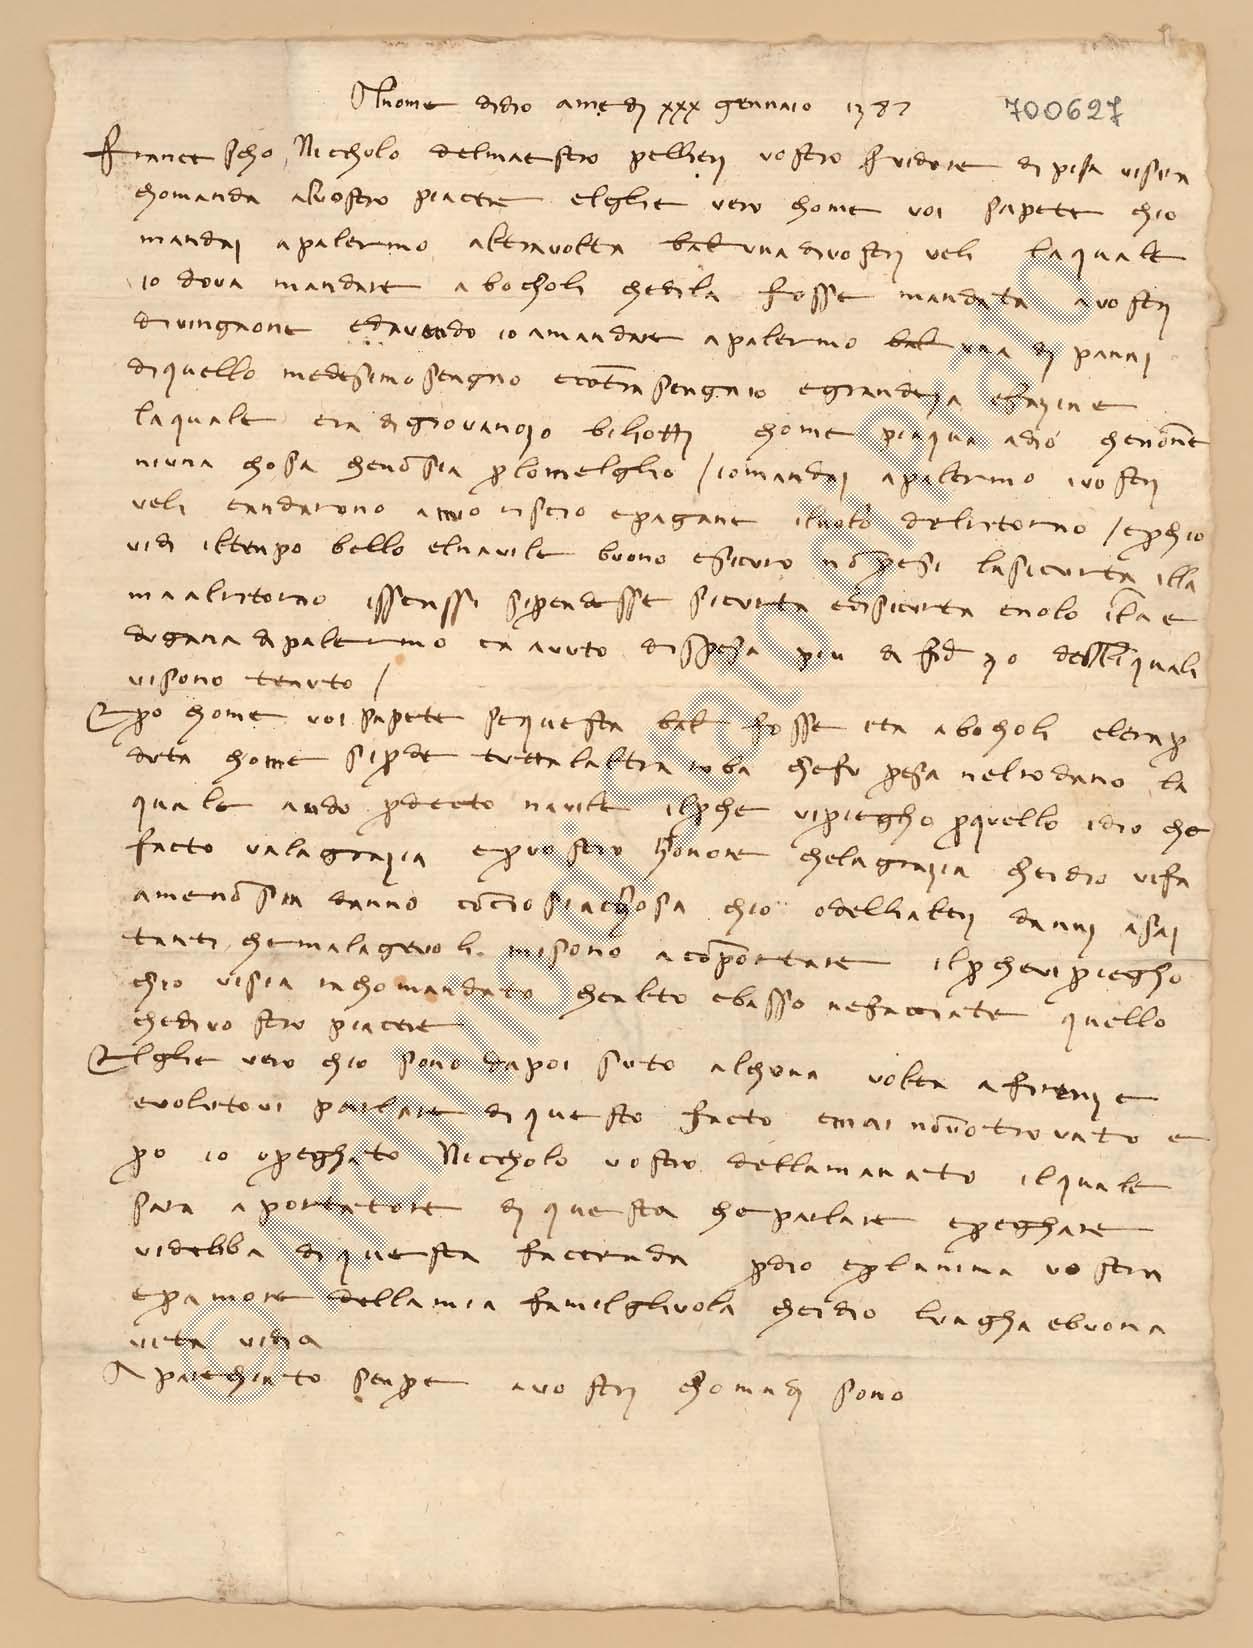 Al nome didio amẹ dj xxx gennaio 1387
700627
Francescho Nicholo delmaestro pellierj vostro s̃vidore dipisa visira
chomanda alvostro piacere elglie vero chome voi sapete chio
mandaj apalermo altravolta bal una divostrj veli laquale
io dova mandare abocholi chedila fosse mandata avostrj
divingnone edavendo io amandare apalermo bal una dj pannj
diquello medesimo sengno econtrasengnio egrandeza efazine
laquale era dj giovanozo biliottj chome piaqua adio chenone
niuna chosa chenō sia p̱lomelglio / iomandaj apalermo ivostrj
veli eandarono amio risicio epagane ilnolo delritorno / ep̱chio
vidi iltenpo bello elnavile buono esicuro nō p̱esi lasicurta illa
maalritorno isscrissi sip̱endesse sicurta edisicurta enolo
dogana dipalermo ca avuto dispesa piu di quali
visono tenuto /
E p̱o chome voi sapete sequesta bal fosse ita abocholi elera p̱
duta chome sip̱de tuttalaltra roba chefu p̱esa nelrodano la
quale ando p̱decto navile ilp̱che vip̱iegho p̱quello idio che
facto valagrazia ep̱vostro honore chelagrazia cheidio vifa
amenō sia danno cōciosiachosa chio odellialtrj dannj asai
tanti chemalagevoli misono acōportare ilp̱chevip̱iegho
chio visia rachomandato chealto ebasso nefacciate quello
chedivostro piacere
Elglie vero chio sono dapoi suto alchuna volta afirenze
evolutovi parlare diquesto facto emai nōvotrovato e
p̱o io op̱eghato Niccholo vostro dellamanato ilquale
sara aportatore dj questa cheparlare ep̱eghare
videbba diquesta faccienda p̱dio ep̱lanima vostra
ep̱amore dellamia familgliuola cheidio lungha ebuona
vita vidia
Aparechiato senp̱e avostrj chomādj sono
© Archivio di Stato di Prato